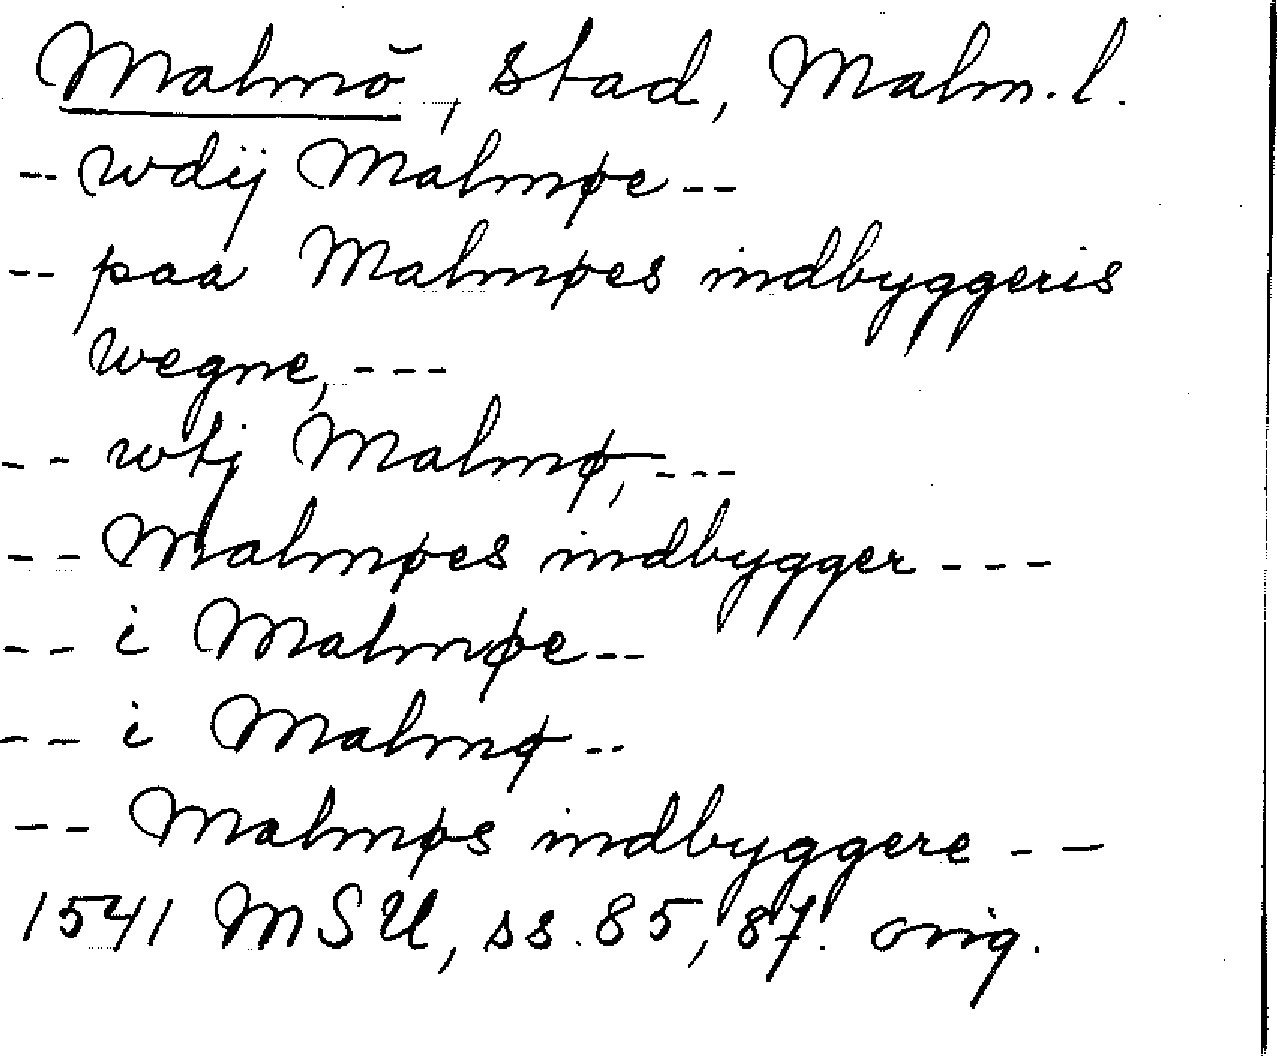 Malmö, stad, Malm. l.
-- wdij Malmøe --
-- paa Malmøes indbyggeris
wegne, ---
-- wtj Malmø, ---
-- Malmøes indbygger ---
-- i Malmøe --
-- i Malmø --
-- Malmøs indbyggere --
1541 MSU, ss. 85, 87. orig.